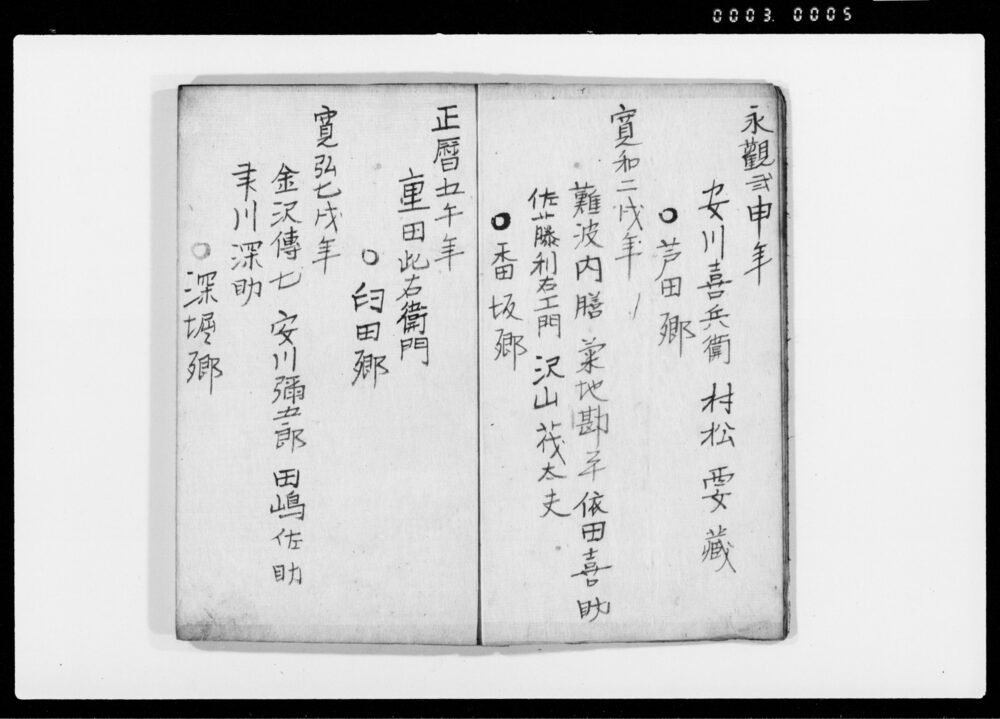 0003. 0005
永觀弐申年
安川喜兵衛 村松要藏
○芦田郷
寛和二戌年
難波内膳 菊地勘平 依田喜助
佐藤利右エ門 沢山茂太夫
○香坂郷
正暦五午年
重田此右衛門
○臼田郷
寛弘七戌年
金沢傳七 安川彌五郎 田嶋佐助
川深助
○深堀郷